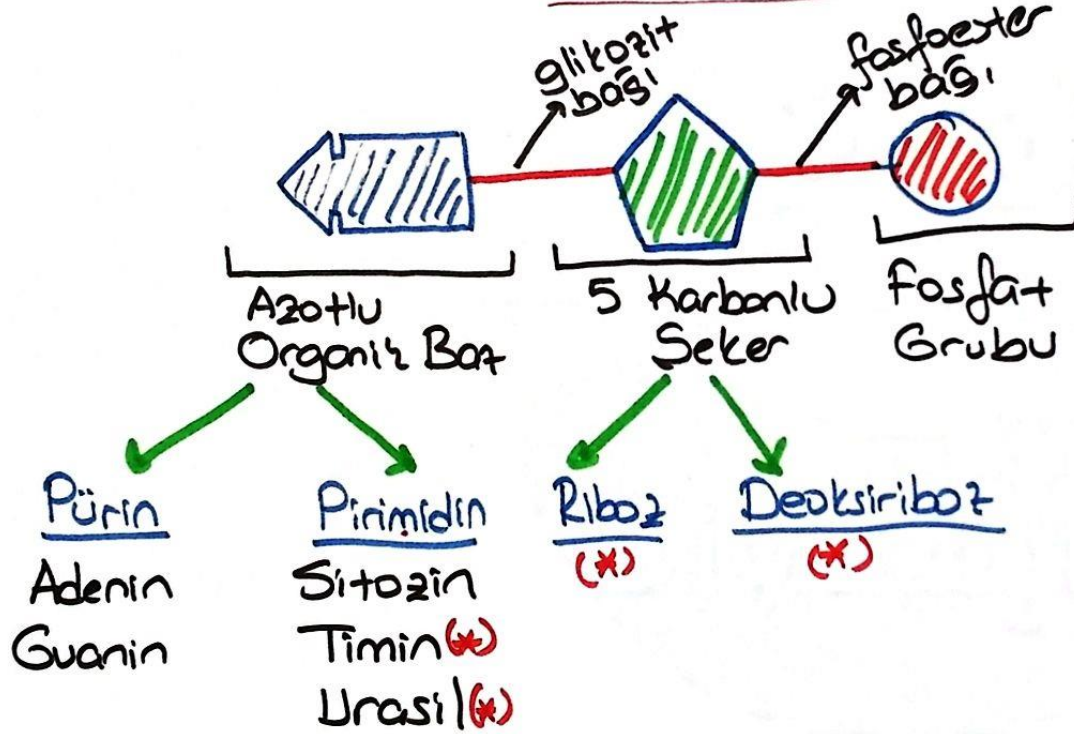 glikozit
bağı
fosfoester
bağı
Azotlu
Organik Baz
5 Karbonlu
Şeker
Fosfat
Grubu
Pürin
Adenin
Guanin
Pirimidin
Sitozin
Timin(*)
Urasil(*)
Riboz
(*)
Deoksiriboz
(*)